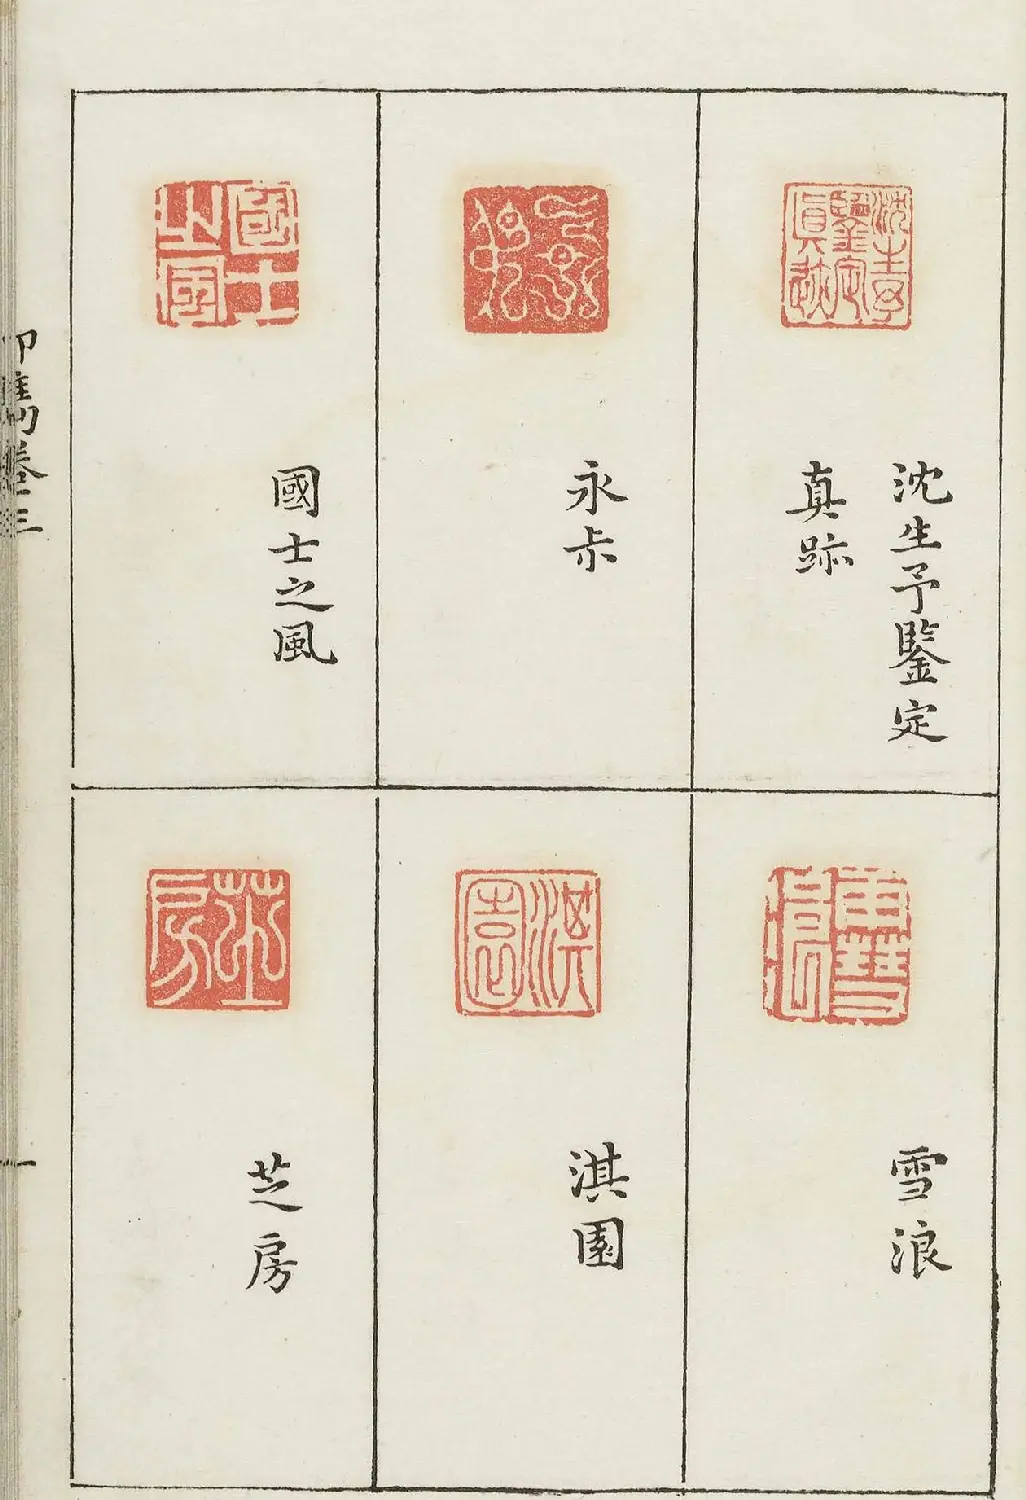 沈生予鑒定
真跡
永尗
國士之風
雪浪
淇園
芝房
卷三
一